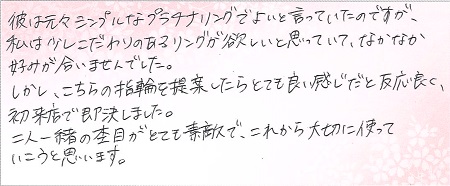 彼は元々シンプルなプラチナリングでよいと言っていたのですが、
私は少しこだわりのあるリングが欲しいと思っていて、なかなか
好みが合いませんでした。
しかし、こちらの指輪を提案したらとても良い感じだと反応良く、
初来店で即決しました。
二人一緒の杢目がとても素敵で、これから大切に使って
いこうと思います。